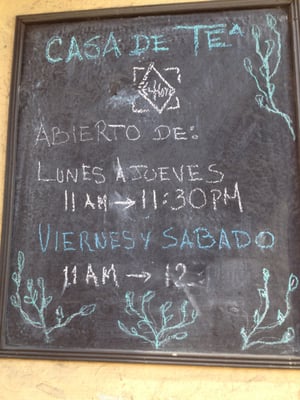 CASA DE TEA
ABIERTO DE:
LUNES A JUEVES
11 AM → 11:30PM
VIERNES Y SABADO
11 AM → 12